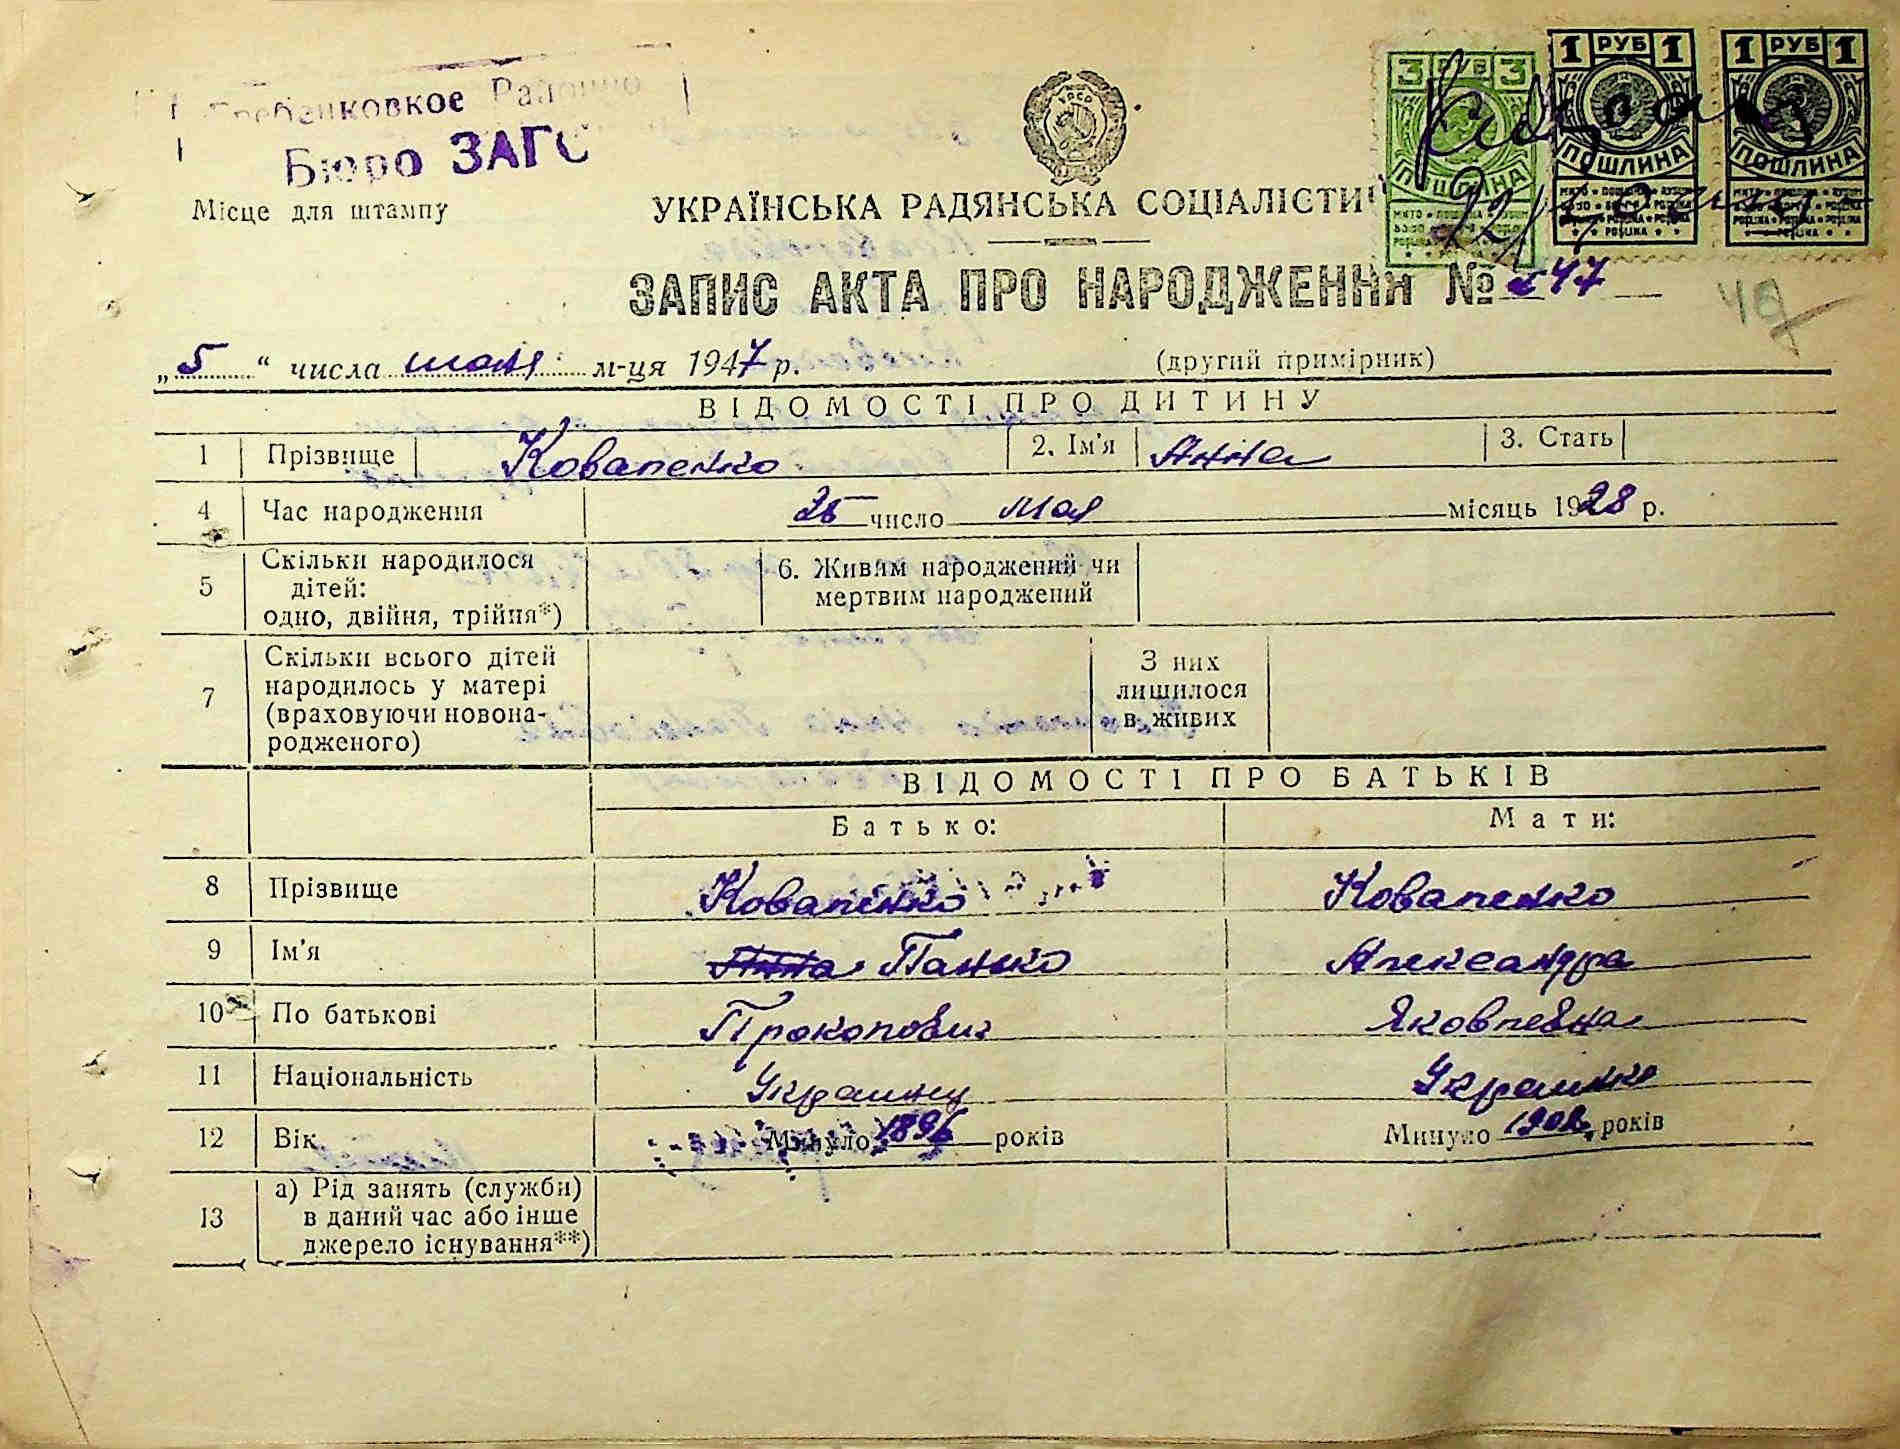 Гребенковкое Районно
Бюро ЗАГС
Місце для штампу
УРСР
3 РУБ 3
ПОШЛИНА
1 РУБ 1
ПОШЛИНА
1 РУБ 1
ПОШЛИНА
УКРАЇНСЬКА РАДЯНСЬКА СОЦІАЛІСТИ
ЗАПИС АКТА ПРО НАРОДЖЕННЯ № 47
„5“ числа м-ця 1947 р. (другий примірник)
ВІДОМОСТІ ПРО ДИТИНУ
1 Прізвище Коваленко 2. Ім'я Анна 3. Стать
4 Час народження число мая місяць 1928 р.
5 Скільки народилося дітей: одно, двійня, трійня*) 6. Живим народжений чи мертвим народжений
7 Скільки всього дітей народилось у матері (враховуючи новонародженого) З них лишилося в живих
ВІДОМОСТІ ПРО БАТЬКІВ
Батько: Мати:
8 Прізвище Коваленко Коваленко
9 Ім'я Анна Панько Александра
10 По батькові Прокопович Яковлевна
11 Національність Украинец Украинка
12 Вік Минуло 1896 років Минуло 1902 років
13 а) Рід занять (служби) в даний час або інше джерело існування**)